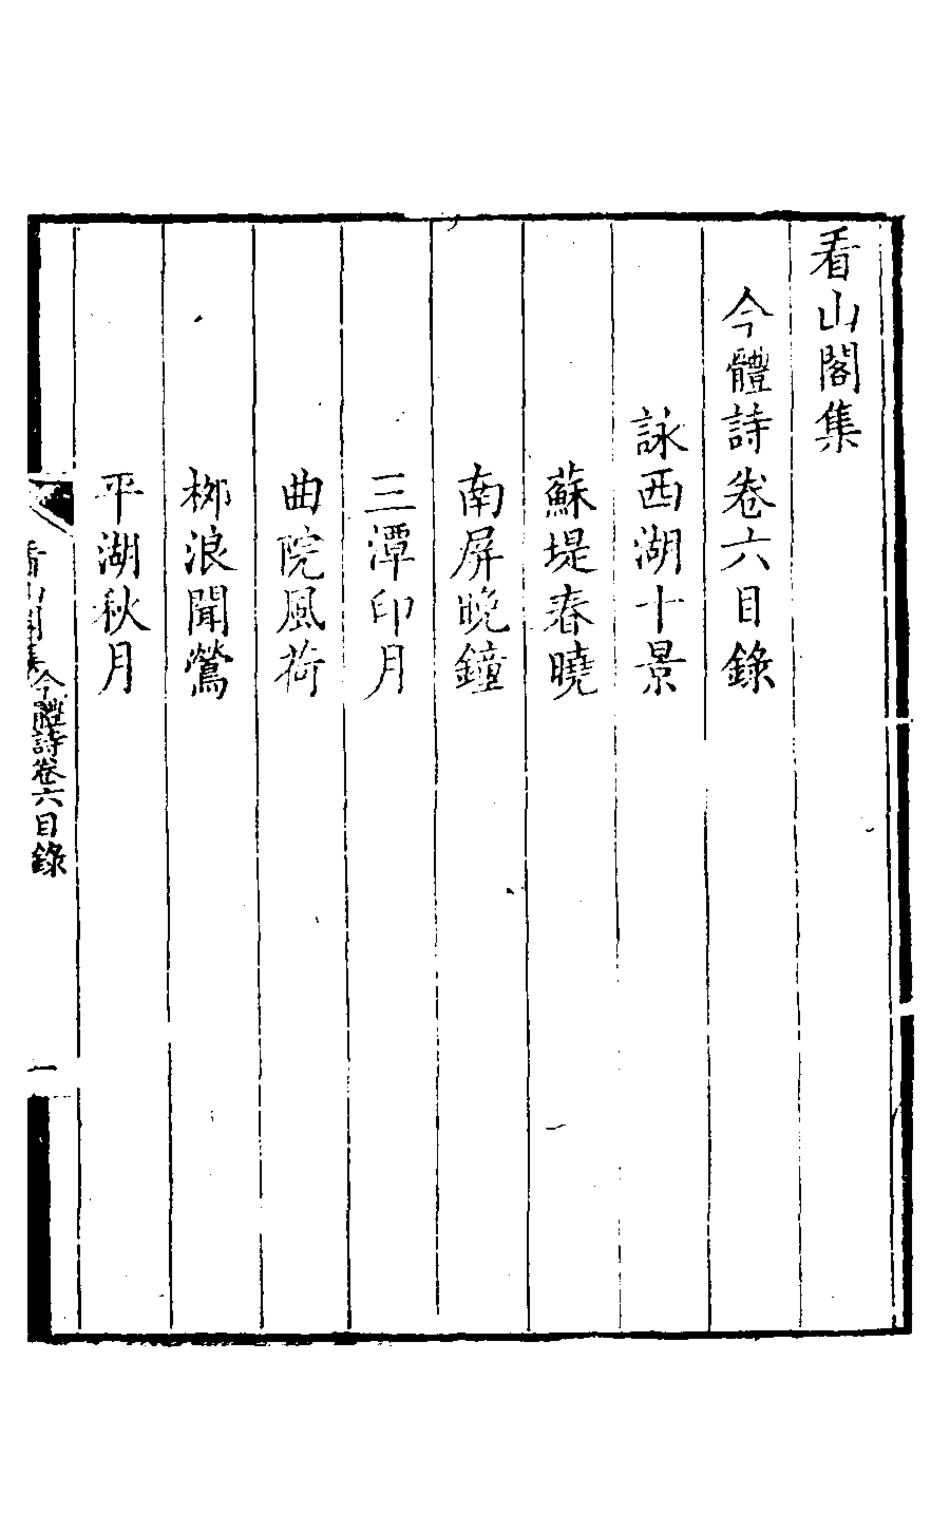 看山閣集
今體詩卷六目錄
詠西湖十景
蘇堤春曉
南屏晚鐘
三潭印月
曲院風荷
桺浪聞鶯
平湖秋月
看山閣集今體詩卷六目錄
一